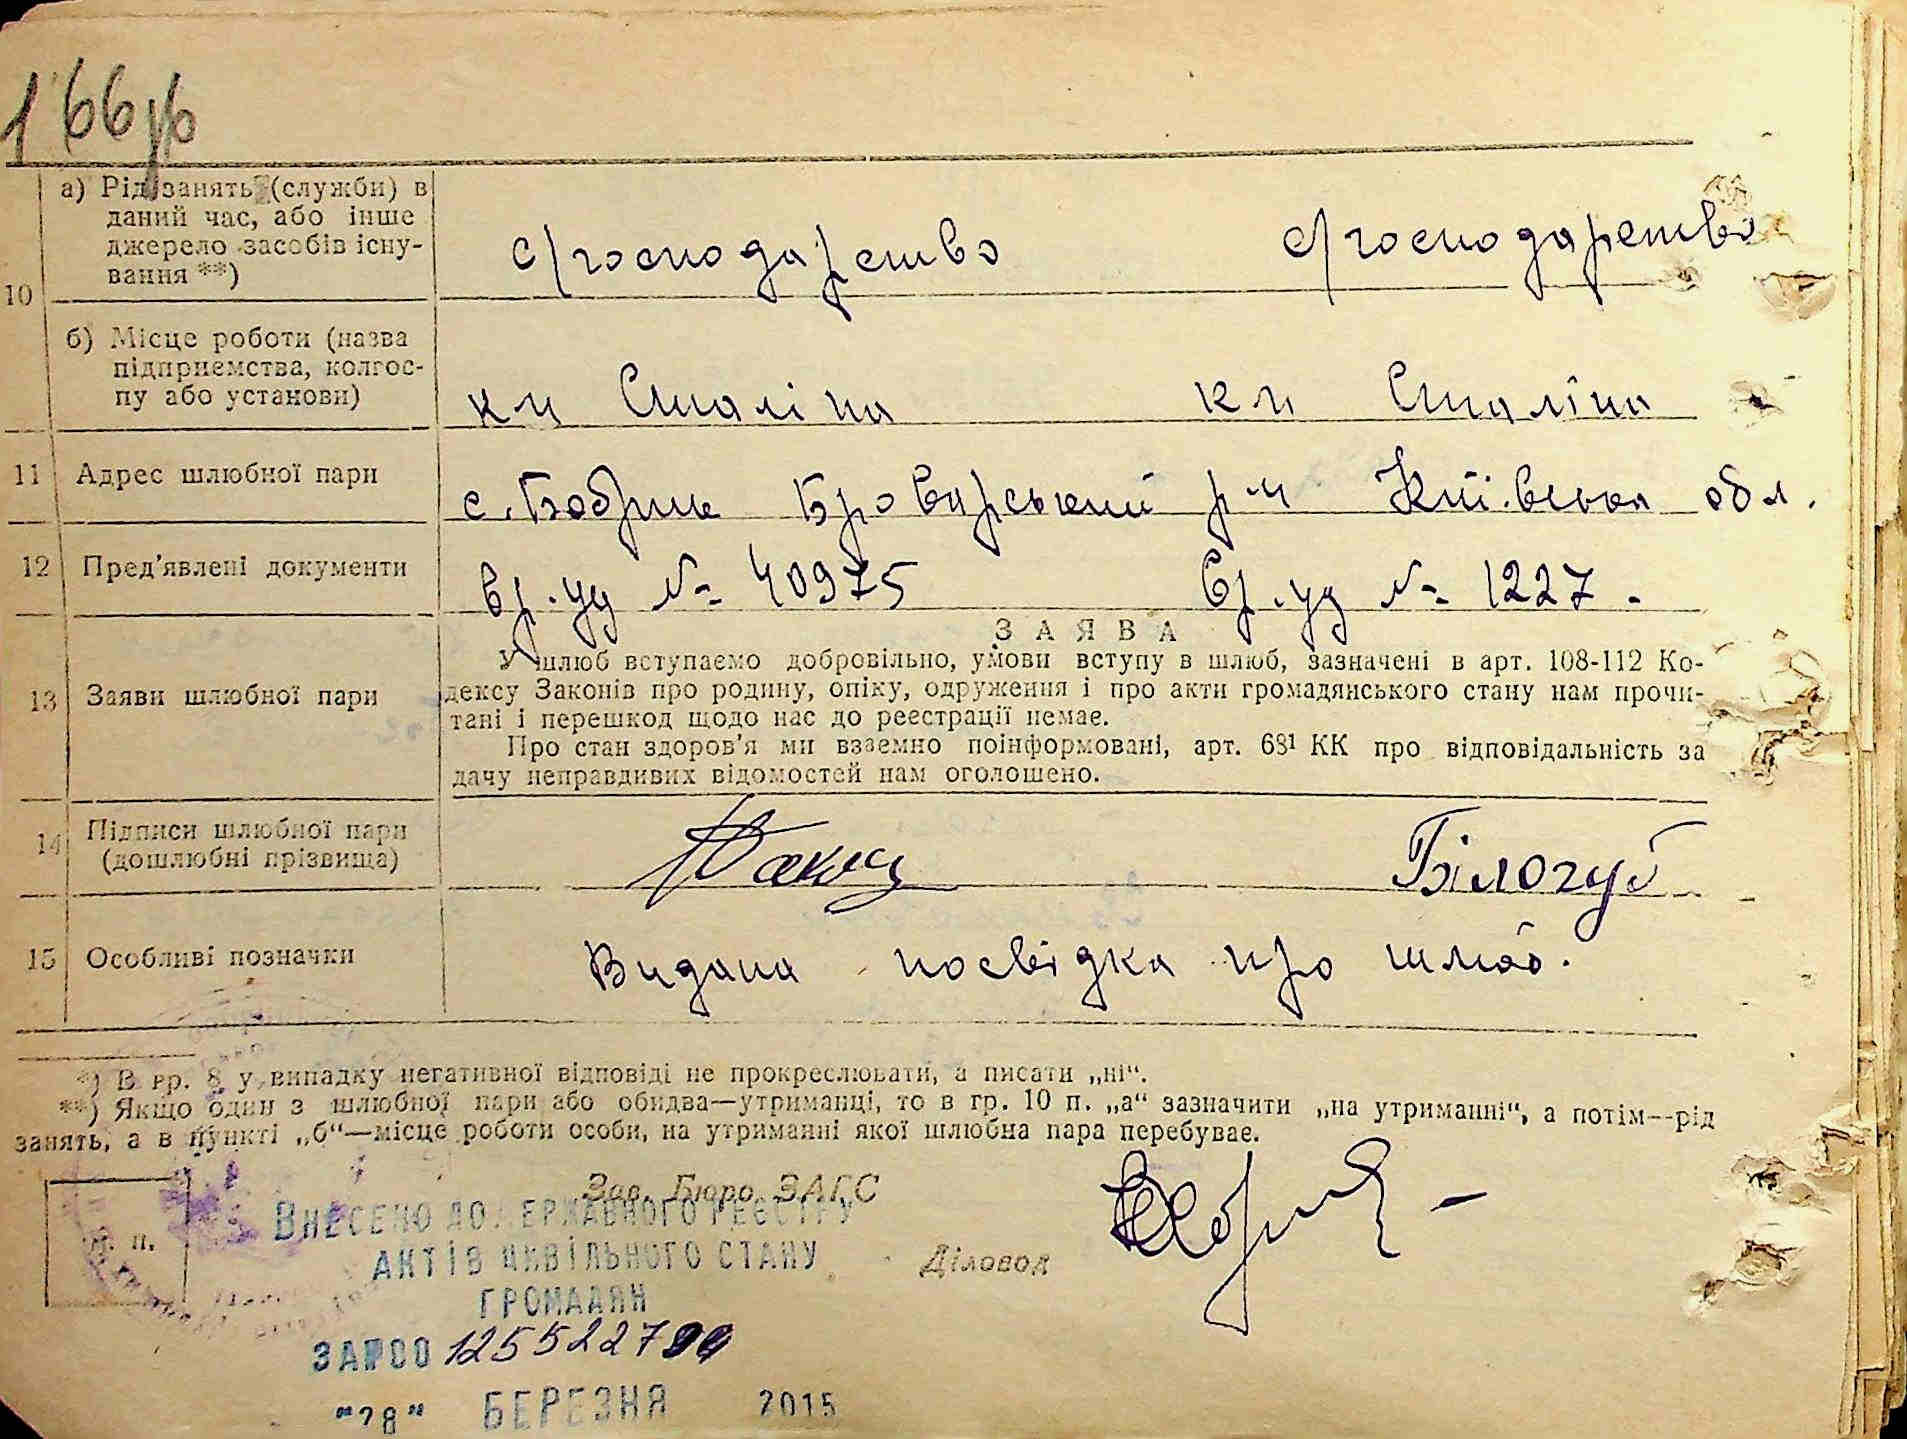 166
10
а) Рід занять (служби) в
даний час, або інше
джерело засобів існу-
вання **)
с/господарство с/господарство
б) Місце роботи (назва
підприємства, колгос-
пу або установи)
к-п Сталіна к-п Сталіна
11 Адрес шлюбної пари
с. Бобрик Броварський р-н Київська обл.
12 Пред'явлені документи
вр. уд № 40975 вр. уд № 1227.
ЗАЯВА
13 Заяви шлюбної пари
У шлюб вступаємо добровільно, умови вступу в шлюб, зазначені в арт. 108-112 Ко-
дексу Законів про родину, опіку, одруження і про акти громадянського стану нам прочи-
тані і перешкод щодо нас до реєстрації немає.
Про стан здоров'я ми взаємно поінформовані, арт. 68¹ КК про відповідальність за
дачу неправдивих відомостей нам оголошено.
14 Підписи шлюбної пари
(дошлюбні прізвища)
Білогуб
15 Особливі позначки
Видана посвідка про шлюб.
*) В гр. 8 у випадку негативної відповіді не прокреслювати, а писати „ні“.
**) Якщо один з шлюбної пари або обидва—утриманці, то в гр. 10 п. „а“ зазначити „на утриманні“, а потім—рід
занять, а в пункті „б“—місце роботи особи, на утриманні якої шлюбна пара перебуває.
м. п.
Зав. Бюро ЗАГС
Внесено до Державного реєстру
актів цивільного стану
громадян
Діловод
за №00 125522794
"28" березня 2015